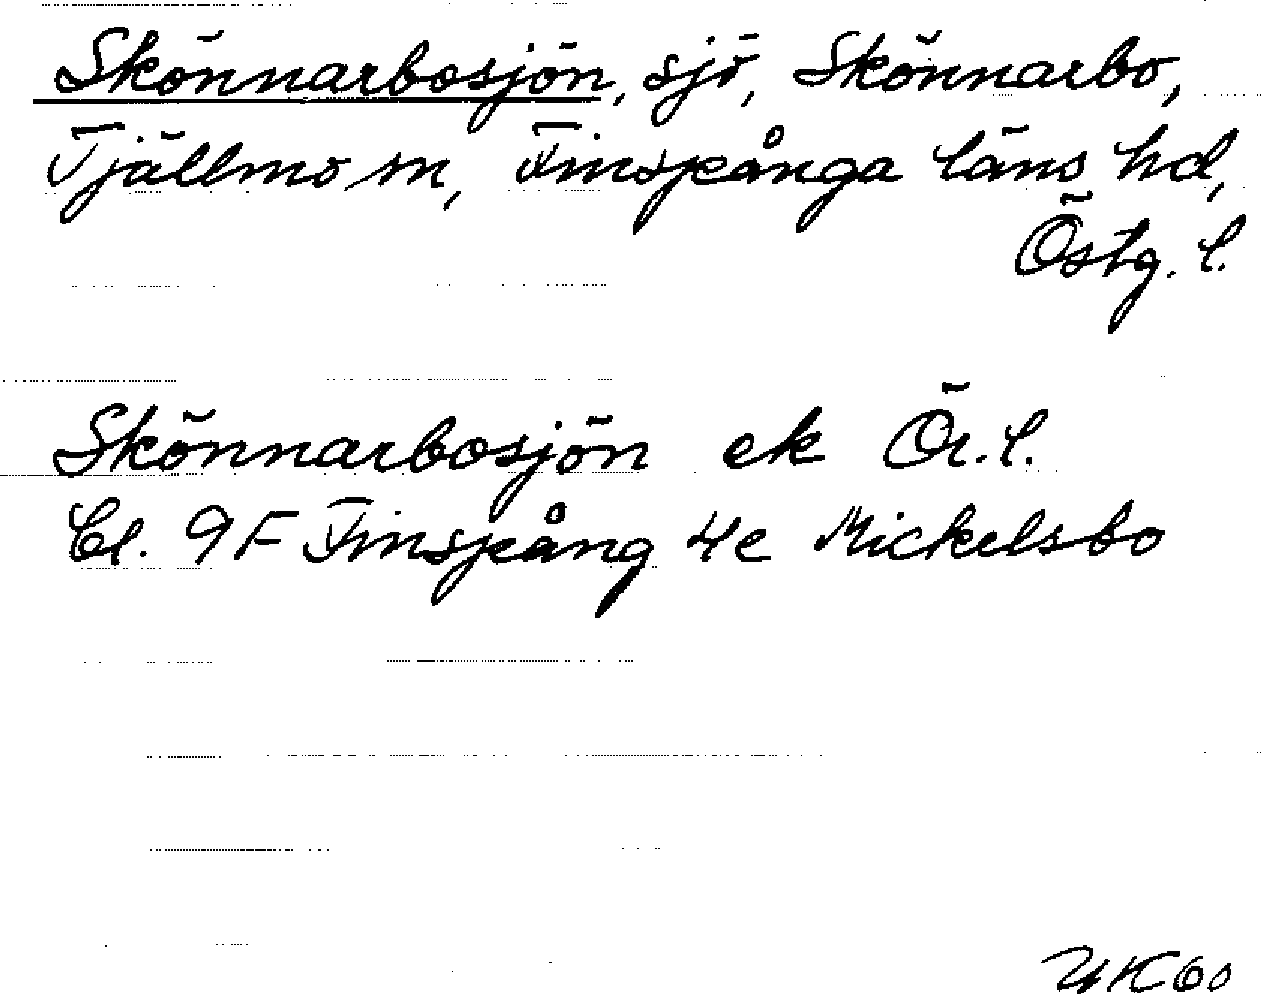 Skönnarbosjön, sjö, Skönnarbo,
Tjällmo sn, Finspånga läns hd,
Östg. l.
Skönnarbosjön ek Ör. l.
Bl. 9F Finspång 4e Mickelsbo
60